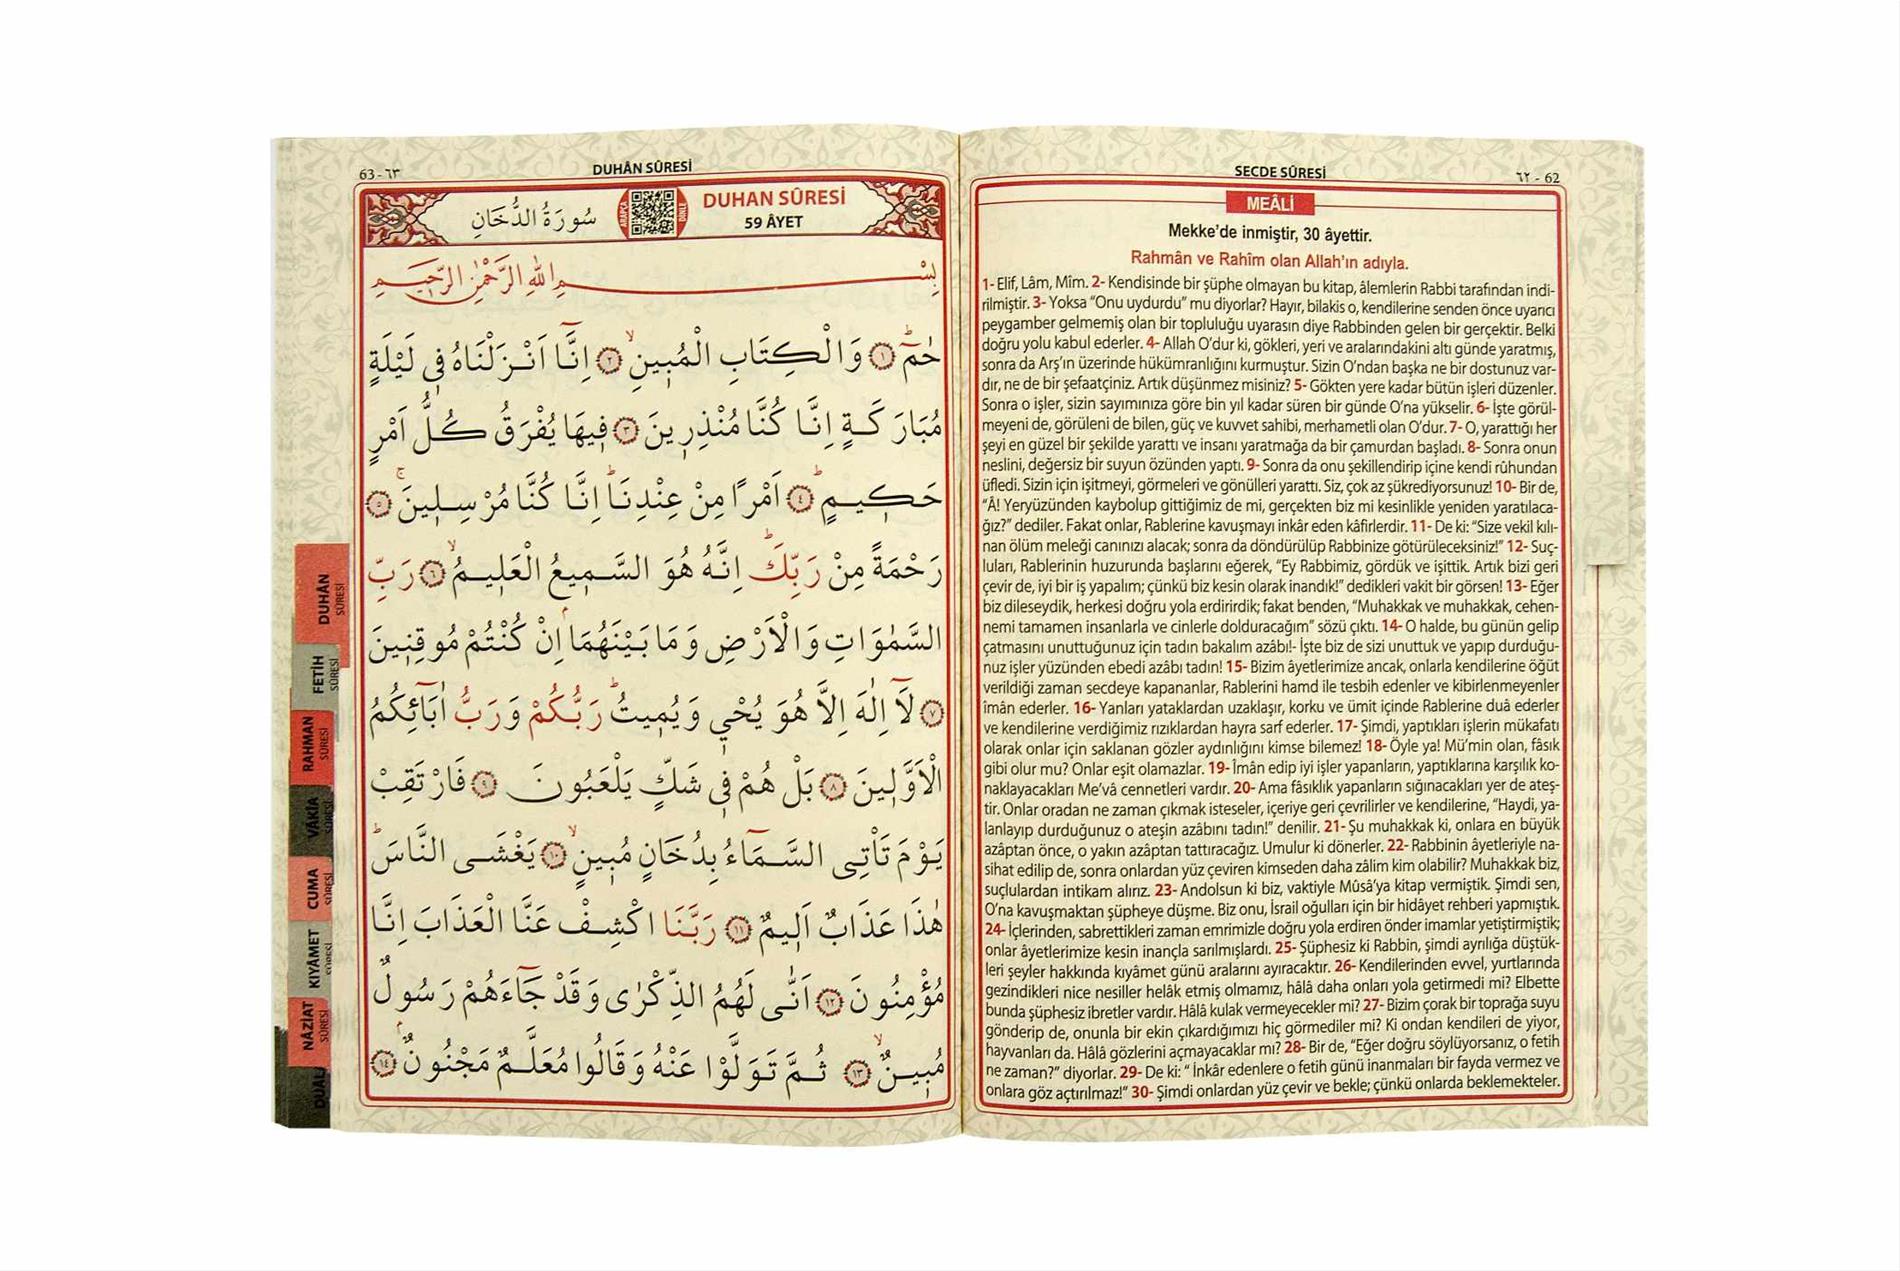 ٦٢ - 62
SECDE SÛRESİ
MEÂLİ
Mekke’de inmiştir, 30 âyettir.
Rahmân ve Rahîm olan Allah’ın adıyla.
1- Elif, Lâm, Mîm. 2- Kendisinde bir şüphe olmayan bu kitap, âlemlerin Rabbi tarafından indi-
rilmiştir. 3- Yoksa “Onu uydurdu” mu diyorlar? Hayır, bilakis o, kendilerine senden önce uyarıcı
peygamber gelmemiş olan bir topluluğu uyarasın diye Rabbinden gelen bir gerçektir. Belki
doğru yolu kabul ederler. 4- Allah O’dur ki, gökleri, yeri ve aralarındakini altı günde yaratmış,
sonra da Arş’ın üzerinde hükümranlığını kurmuştur. Sizin O’ndan başka ne bir dostunuz var-
dır, ne de bir şefaatçiniz. Artık düşünmez misiniz? 5- Gökten yere kadar bütün işleri düzenler.
Sonra o işler, sizin sayımınıza göre bin yıl kadar süren bir günde O’na yükselir. 6- İşte görül-
meyeni de, görüleni de bilen, güç ve kuvvet sahibi, merhametli olan O’dur. 7- O, yarattığı her
şeyi en güzel bir şekilde yarattı ve insanı yaratmağa da bir çamurdan başladı. 8- Sonra onun
neslini, değersiz bir suyun özünden yaptı. 9- Sonra da onu şekillendirip içine kendi rûhundan
üfledi. Sizin için işitmeyi, görmeleri ve gönülleri yarattı. Siz, çok az şükrediyorsunuz! 10- Bir de,
“Â! Yeryüzünden kaybolup gittiğimiz de mi, gerçekten biz mi kesinlikle yeniden yaratılaca-
ğız?” dediler. Fakat onlar, Rablerine kavuşmayı inkâr eden kâfirlerdir. 11- De ki: “Size vekil kılı-
nan ölüm meleği canınızı alacak; sonra da döndürülüp Rabbinize götürüleceksiniz!” 12- Suç-
luları, Rablerinin huzurunda başlarını eğerek, “Ey Rabbimiz, gördük ve işittik. Artık bizi geri
çevir de, iyi bir iş yapalım; çünkü biz kesin olarak inandık!” dedikleri vakit bir görsen! 13- Eğer
biz dileseydik, herkesi doğru yola erdirirdik; fakat benden, “Muhakkak ve muhakkak, cehen-
nemi tamamen insanlarla ve cinlerle dolduracağım” sözü çıktı. 14- O halde, bu günün gelip
çatmasını unuttuğunuz için tadın bakalım azâbı!- İşte biz de sizi unuttuk ve yapıp durduğu-
nuz işler yüzünden ebedi azâbı tadın! 15- Bizim âyetlerimize ancak, onlarla kendilerine öğüt
verildiği zaman secdeye kapananlar, Rablerini hamd ile tesbih edenler ve kibirlenmeyenler
îmân ederler. 16- Yanları yataklardan uzaklaşır, korku ve ümit içinde Rablerine duâ ederler
ve kendilerine verdiğimiz rızıklardan hayra sarf ederler. 17- Şimdi, yaptıkları işlerin mükafatı
olarak onlar için saklanan gözler aydınlığını kimse bilemez! 18- Öyle ya! Mü’min olan, fâsık
gibi olur mu? Onlar eşit olamazlar. 19- Îmân edip iyi işler yapanların, yaptıklarına karşılık ko-
naklayacakları Me’vâ cennetleri vardır. 20- Ama fâsıklık yapanların sığınacakları yer de ateş-
tir. Onlar oradan ne zaman çıkmak isteseler, içeriye geri çevrilirler ve kendilerine, “Haydi, ya-
lanlayıp durduğunuz o ateşin azâbını tadın!” denilir. 21- Şu muhakkak ki, onlara en büyük
azâptan önce, o yakın azâptan tattıracağız. Umulur ki dönerler. 22- Rabbinin âyetleriyle na-
sihat edilip de, sonra onlardan yüz çeviren kimseden daha zâlim kim olabilir? Muhakkak biz,
suçlulardan intikam alırız. 23- Andolsun ki biz, vaktiyle Mûsâ’ya kitap vermiştik. Şimdi sen,
O’na kavuşmaktan şüpheye düşme. Biz onu, İsrail oğulları için bir hidâyet rehberi yapmıştık.
24- İçlerinden, sabrettikleri zaman emrimizle doğru yola erdiren önder imamlar yetiştirmiştik;
onlar âyetlerimize kesin inançla sarılmışlardı. 25- Şüphesiz ki Rabbin, şimdi ayrılığa düştük-
leri şeyler hakkında kıyâmet günü aralarını ayıracaktır. 26- Kendilerinden evvel, yurtlarında
gezindikleri nice nesiller helâk etmiş olmamız, hâlâ daha onları yola getirmedi mi? Elbette
bunda şüphesiz ibretler vardır. Hâlâ kulak vermeyecekler mi? 27- Bizim çorak bir toprağa suyu
gönderip de, onunla bir ekin çıkardığımızı hiç görmediler mi? Ki ondan kendileri de yiyor,
hayvanları da. Hâlâ gözlerini açmayacaklar mı? 28- Bir de, “Eğer doğru söylüyorsanız, o fetih
ne zaman?” diyorlar. 29- De ki: “ İnkâr edenlere o fetih günü inanmaları bir fayda vermez ve
onlara göz açtırılmaz!” 30- Şimdi onlardan yüz çevir ve bekle; çünkü onlarda beklemekteler.
63 - ٦٣
DUHÂN SÛRESİ
سُورَةُ الدُّخَانِ
ARAPÇA
DİNLE
DUHAN SÛRESİ
59 ÂYET
بِسْمِ اللهِ الرَّحْمٰنِ الرَّحِيمِ
حٰمٓ ﴿١﴾ وَالْكِتَابِ الْمُبِينِ ﴿٢﴾ اِنَّٓا اَنْزَلْنَاهُ فِي لَيْلَةٍ
مُبَارَكَةٍ اِنَّا كُنَّا مُنْذِرِينَ ﴿٣﴾ فِيهَا يُفْرَقُ كُلُّ اَمْرٍ
حَكِيمٍ ﴿٤﴾ اَمْرًا مِنْ عِنْدِنَا اِنَّا كُنَّا مُرْسِلِينَ ﴿٥﴾
رَحْمَةً مِنْ رَبِّكَ اِنَّهُ هُوَ السَّمِيعُ الْعَلِيمُ ﴿٦﴾ رَبِّ
السَّمٰوَاتِ وَالْاَرْضِ وَمَا بَيْنَهُمَا اِنْ كُنْتُمْ مُوقِنِينَ
﴿٧﴾ لَٓا اِلٰهَ اِلَّا هُوَ يُحْيِي وَيُمِيتُ رَبُّكُمْ وَرَبُّ اٰبَٓائِكُمُ
الْاَوَّلِينَ ﴿٨﴾ بَلْ هُمْ فِي شَكٍّ يَلْعَبُونَ ﴿٩﴾ فَارْتَقِبْ
يَوْمَ تَأْتِي السَّمَٓاءُ بِدُخَانٍ مُبِينٍ ﴿١٠﴾ يَغْشَى النَّاسَ
هٰذَا عَذَابٌ اَلِيمٌ ﴿١١﴾ رَبَّنَا اكْشِفْ عَنَّا الْعَذَابَ اِنَّا
مُؤْمِنُونَ ﴿١٢﴾ اَنّٰى لَهُمُ الذِّكْرٰى وَقَدْ جَٓاءَهُمْ رَسُولٌ
مُبِينٌ ﴿١٣﴾ ثُمَّ تَوَلَّوْا عَنْهُ وَقَالُوا مُعَلَّمٌ مَجْنُونٌ ﴿١٤﴾
DUHÂN
SÛRESİ
FETİH
SÛRESİ
RAHMAN
SÛRESİ
VÂKIA
SÛRESİ
CUMA
SÛRESİ
KIYÂMET
SÛRESİ
NÂZİAT
SÛRESİ